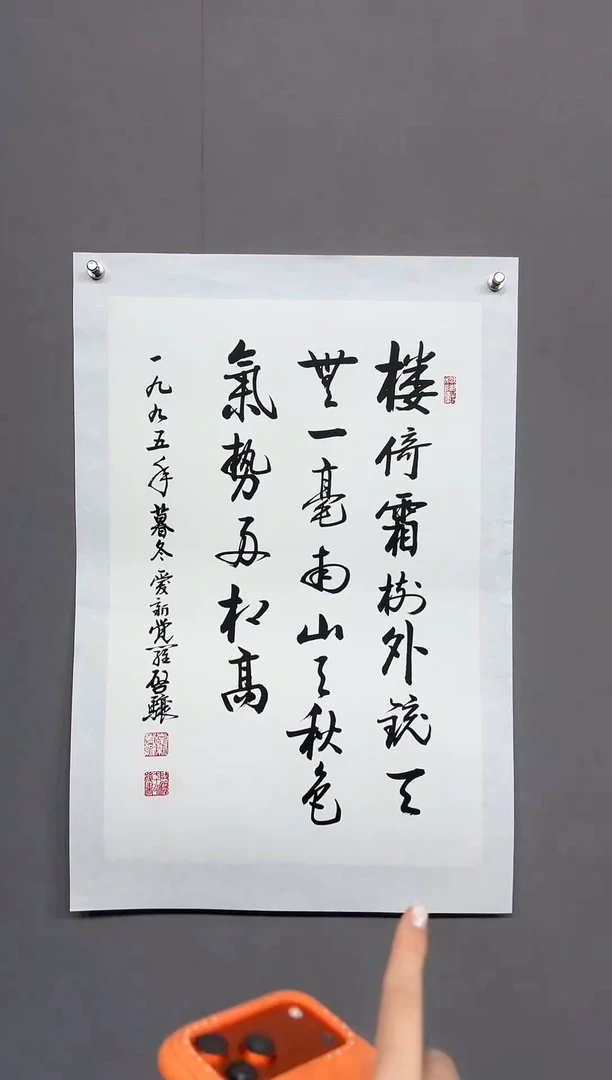 楼倚霜树外鏡天
無一毫南山与秋色
氣勢两相高
一九九五年暮冬愛新覺羅启驤